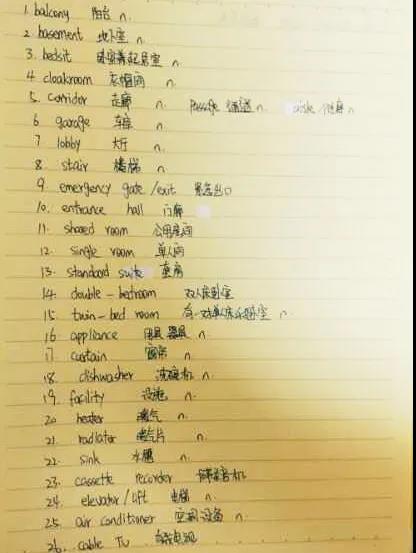 1. balcony 阳台 n.
2. basement 地下室 n.
3. bedsit 卧室兼起居室 n.
4. cloakroom 衣帽间 n.
5. corridor 走廊 n. passage 通道 n. aisle n
6. garage 车库 n.
7 lobby 大厅 n.
8. stair 楼梯 n.
9. emergency gate /exit 紧急出口
10. entrance hall 门廊
11. shared room 公用房间
12. single room 单人间
13. standard suite 套房
14. double-bedroom 双人床卧室
15. twin-bed room 有一对单人床的卧室 n.
16. appliance 用具 器具 n.
17. curtain 窗帘 n.
18. dishwasher 洗碗机 n.
19. facility 设施 n.
20 heater 暖气 n.
21. radiator 暖气片 n.
22. sink 水槽 n.
23. cassette recorder 录音机
24. elevator/lift 电梯 n.
25. air conditioner 空调设备 n
26. cable TV 有线电视